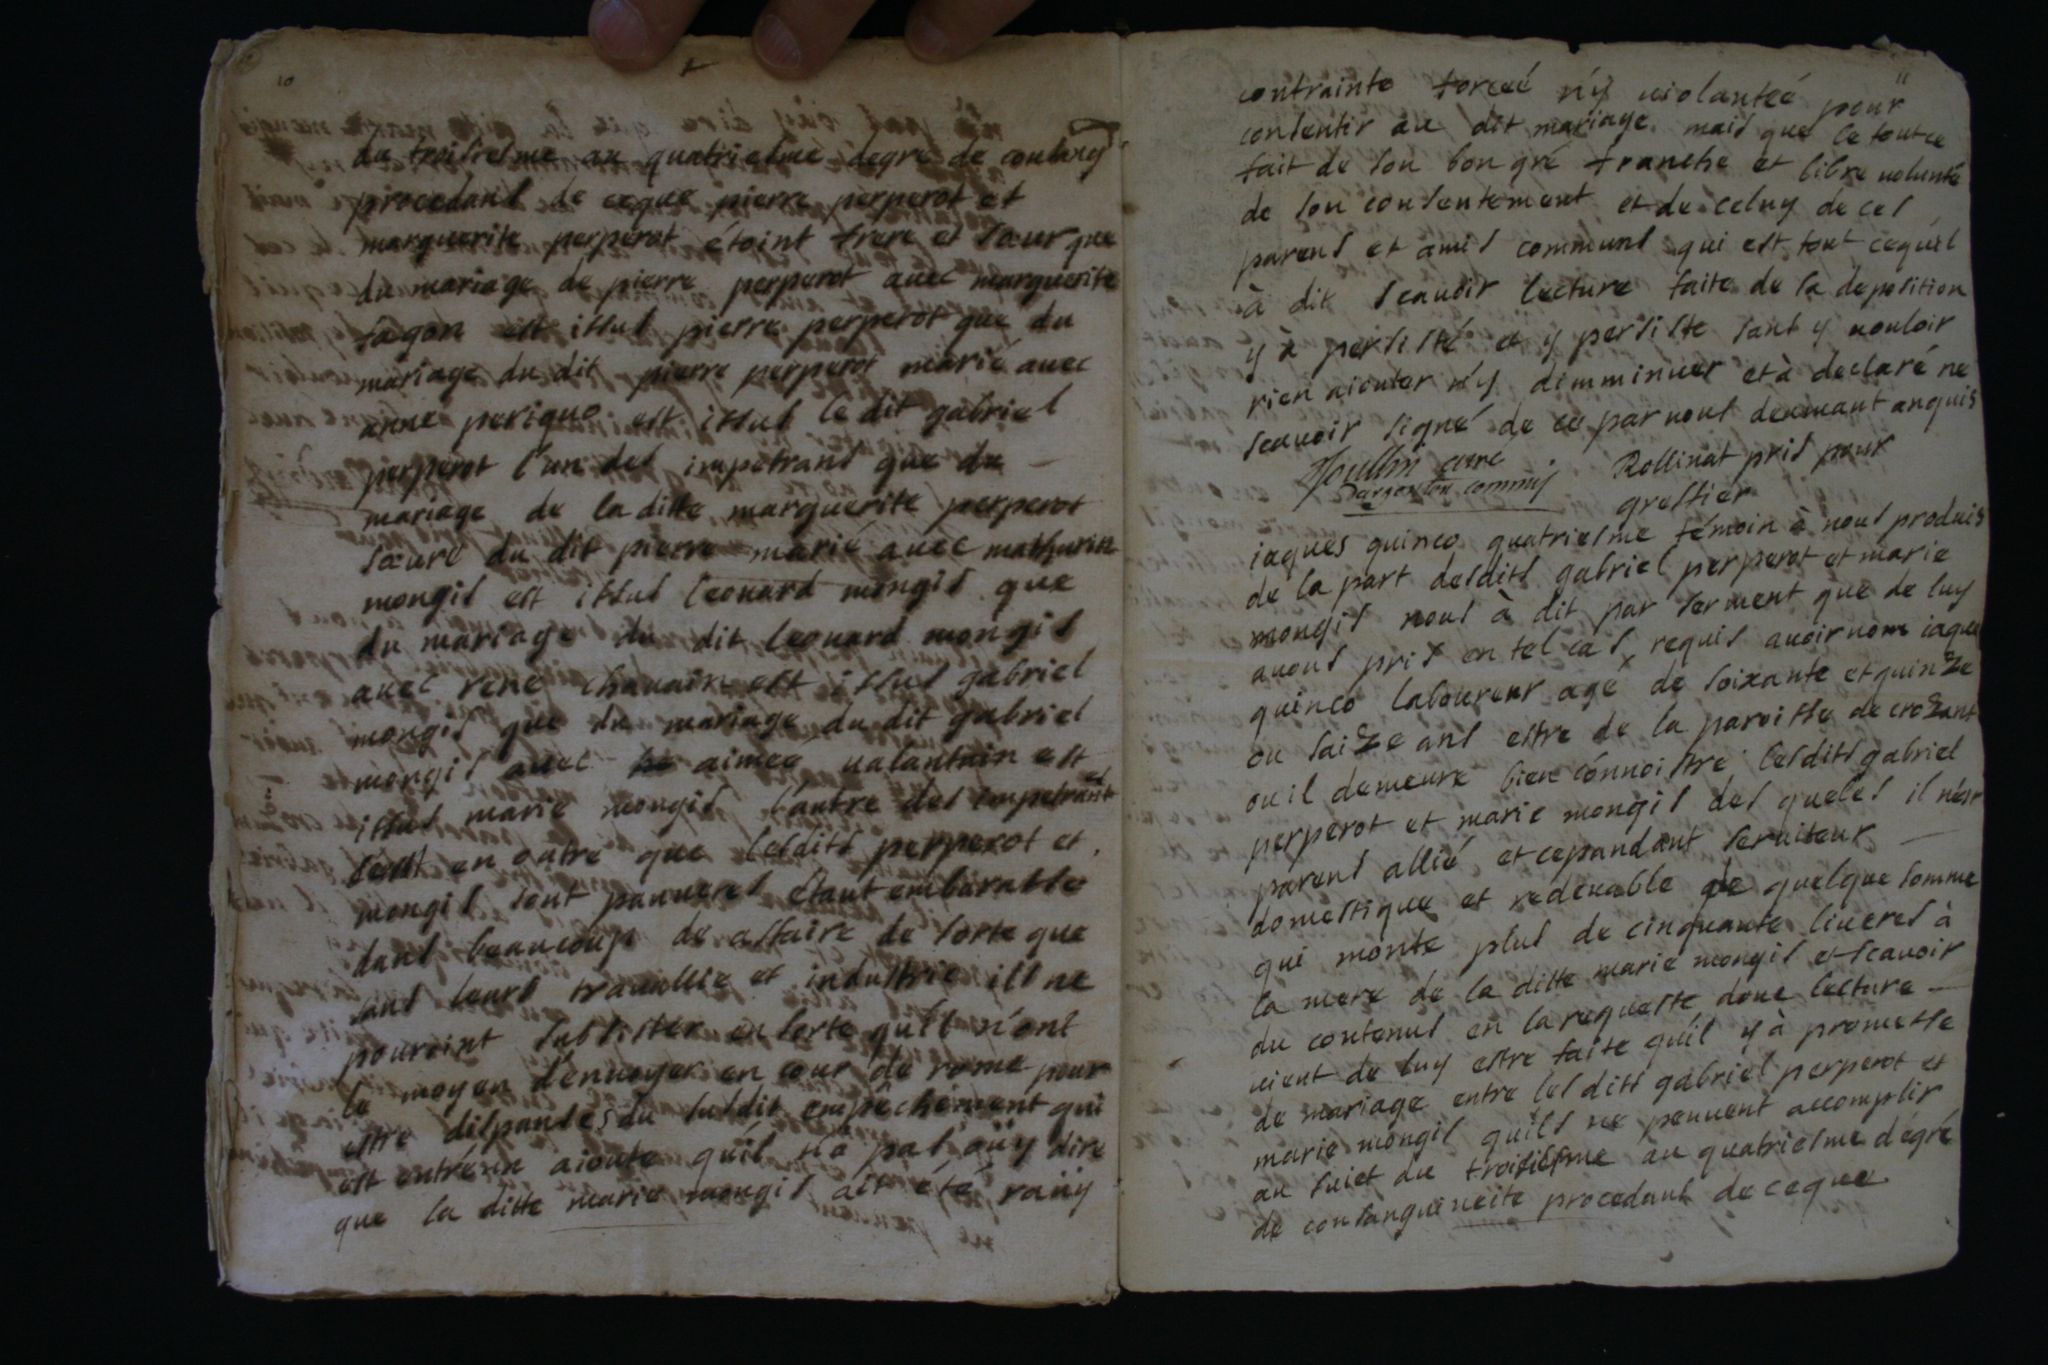 10
du troisiesme au quatriesme degre de consang
procedans de ceque pierre perperot et
marguerite perperot étoint frere et sœur que
du mariage de pierre perperot avec marguerite
fagon est issus pierre perperot que du
mariage du dit pierre perperot marié avec
anne perique est issus le dit gabriel
perperot l'un des impetrans que du
mariage de la ditte marguerite perperot
sœure du dit pierre marié avec mathurin
mongis est issus leonard mongis que
du mariage du dit leonard mongis
avec rene chauain est issus gabriel
mongis que du mariage du dit gabriel
mongis avec aimee valantain est
issus marie mongis l'autre des impetrants
en outre que lesdits perperot et
mongis sont pauveres étant embarasse
dans beaucoup de affaire de sorte que
sans leurs travallie et industrie ils ne
pouroint subsister en sorte quils n'ont
le moyen d'envoyer en cour de rome pour
estre dispanses du susdit empêchement qui
est entréux aioute quil n'a pas oüy dire
que la ditte marie mongis ait été raüy
ne
11
contrainte forceé n'y violanteé pour
consentir au dit mariage mais que le tout ce
fait de son bon gré franche et libre volunté
de son consentement et de celuy de ces
parens et amis communs qui est tout cequil
à dit scavoir lecture faite de sa deposition
y à persisté et y persiste sans y vouloir
rien aiouter n'y dimminuer et à declaré ne
scavoir signé de ce par nous deumant anquis
curé Rollinat pris pour
Dargenton commis greffier
iaques quinco quatriesme témoin à nous produis
de la part desdits gabriel perperot et marie
mongis nous à dit par serment que de luy
avons pris en tel cas requis avoir nom iaque
quinco laboureur agé de soixante et quinze
ou saize ans estre de la paroisse de crozant
ou il demeure bien connoistre lesdits gabriel
perperot et marie mongis des queles il n'est
parens allié et cepandant serviteur
domestique et redevable de quelque somme
qui monte plus de cinquante liveres à
la mere de la ditte marie mongis et scavoir
du contenus en la requeste dont lecture
vient de luy estre faite quil y à promesse
de mariage entre lesdits gabriel perperot et
marie mongis quils ne peuvent accomplir
au suiet du troisiesme au quatriesme dégré
de consanguineite procedant de ceque